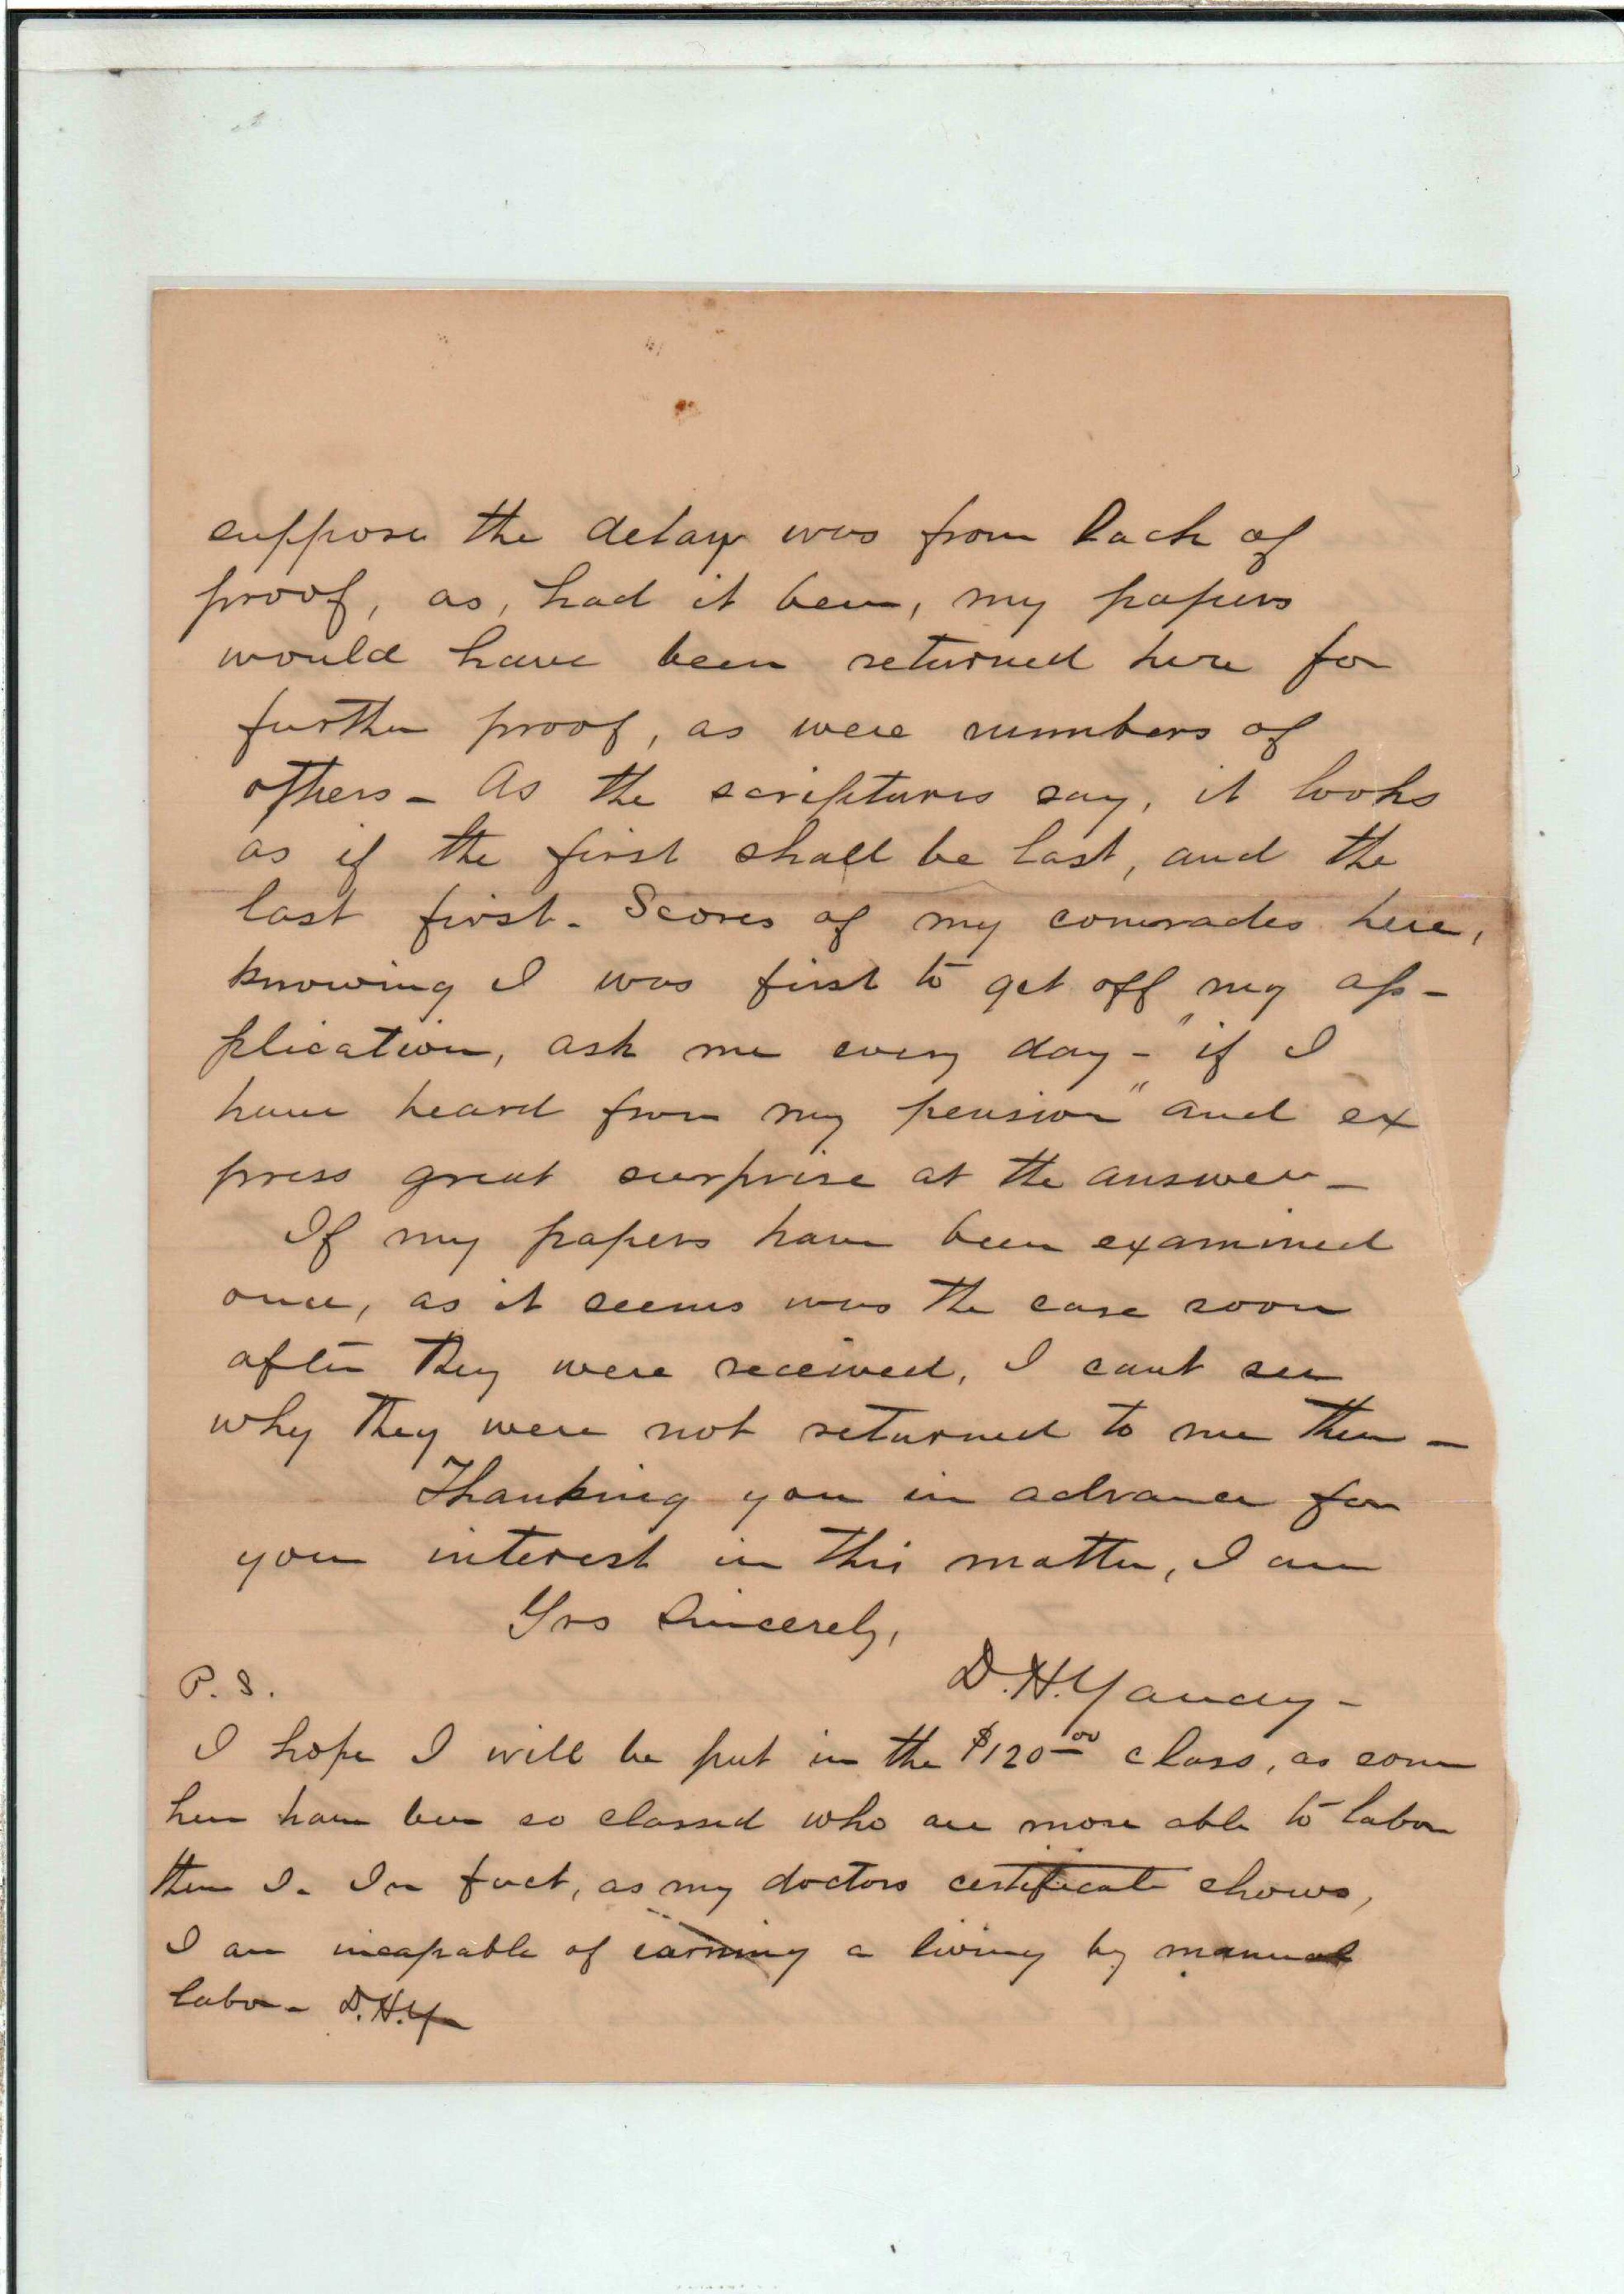 suppose the delay was from lack of
proof, as, had it been, my papers
would have been returned here for
further proof, as were numbers of
others - As the scriptures say, it looks
as if the first shall be last, and the
last first. Scores of my comrades here,
knowing I was first to get off my ap-
plication, ask me every day - "if I
have heard from my pension" and ex
press great surprise at the answer -
If my papers have been examined
once, as it seems was the case soon
after they were received, I cant see
why they were not returned to me then -
Thanking you in advance for
your interest in this matter, I am
Yrs Sincerely,
D. H. Yancey -
P. S.
I hope I will be put in the $120.00 class, as some
here have been so classed who are more able to labor
than I - In fact, as my doctors certificate shows,
I am incapable of earning a living by manual
labor - D. H. Y.